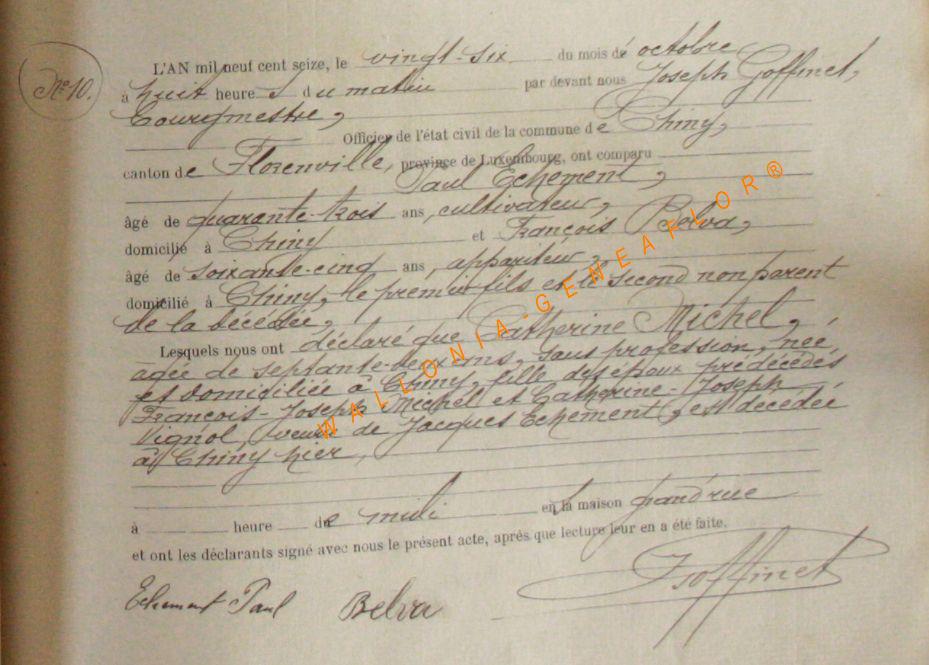 N° 10.
L'AN mil neuf cent seize, le vingt-six du mois de octobre
à huit heures du matin par devant nous Joseph Goffinet,
Bourgmestre,
Officier de l'état civil de la commune de Chiny,
canton de Florenville, province de Luxembourg, ont comparu
Paul Echement,
âgé de quarante-trois ans, cultivateur,
domicilié à Chiny et François Belva,
âgé de soixante-cinq ans, appariteur,
domicilié à Chiny, le premier fils et le second non parent
de la décédée,
Lesquels nous ont déclaré que Catherine Michel,
agée de septante-deux ans, sans profession, née
et domiciliée à Chiny, fille des époux prédécédés
François-Joseph Michel et Catherine-Joseph
Vignol, veuve de Jacques Echement, est décédée
à Chiny hier,
à heure de midi en la maison grand rue
et ont les déclarants signé avec nous le présent acte, après que lecture leur en a été faite.
Echement Paul Belva JGoffinet
WALLONIA-GENEAFLOR®